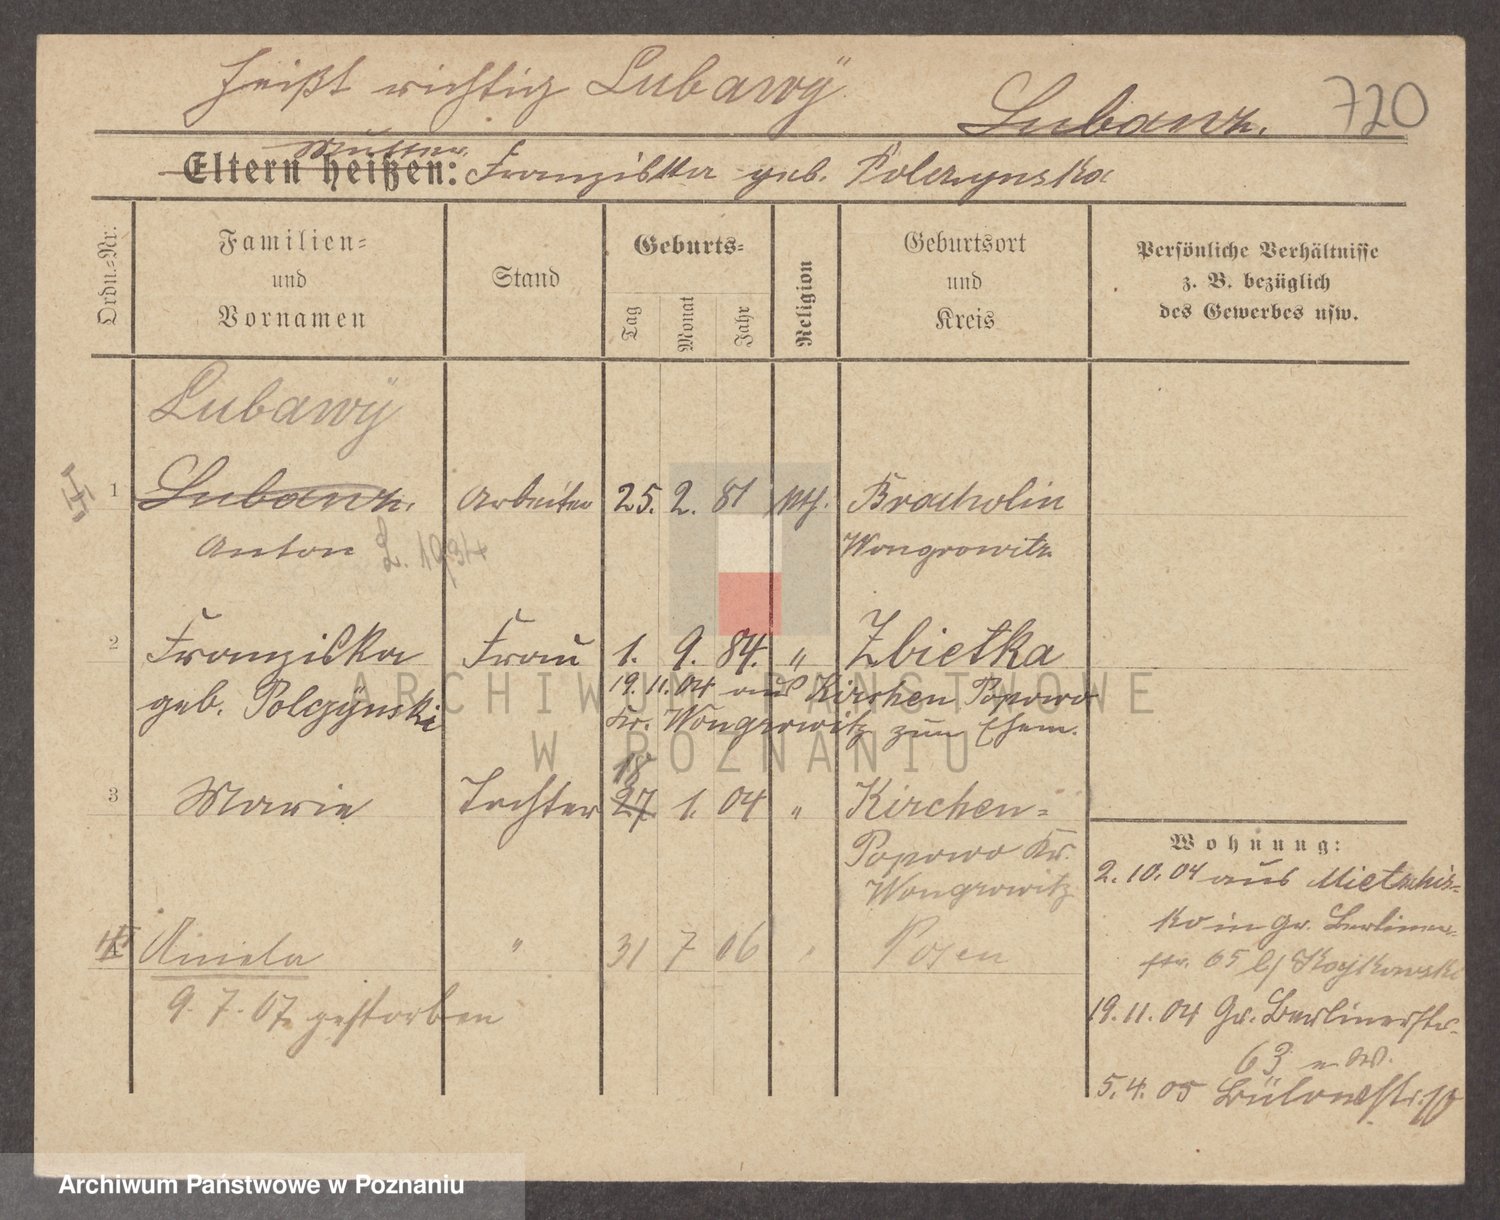 heißt richtig Lubawÿ
Lubawz. 720
Mutter
Eltern heißen: Franziska geb. Polczynska
Ordn.-Nr.
Familien-
und
Vornamen
Stand
Geburts-
Tag
Monat
Jahr
Religion
Geburtsort
und
Kreis
Persönliche Verhältnisse
z. B. bezüglich
des Gewerbes usw.
Lubawÿ
1 Lubawz. Arbeiter 25. 2. 81 kth. Bracholin
Anton L. 1934 Wongrowitz
2 Franziska Frau 1. 9. 84. " Zbietka
geb. Polczÿnski 19.11.04 aus Kirchen Popowo
Kr. Wongrowitz zum Ehem.
18
3 Marie Tochter 27. 1. 04 " Kirchen-
Popowo Kr.
Wongrowitz
Aniela " 31 7 06 " Posen
9. 7. 07 gestorben
Wohnung:
2. 10. 04 aus Mietschis-
ko in Gr. Berliner-
str. 65 b/
19. 11. 04 Gr. Berlinerstr.
63
5. 4. 05 Bülowstr.
ARCHIWUM PAŃSTWOWE
W POZNANIU
Archiwum Państwowe w Poznaniu